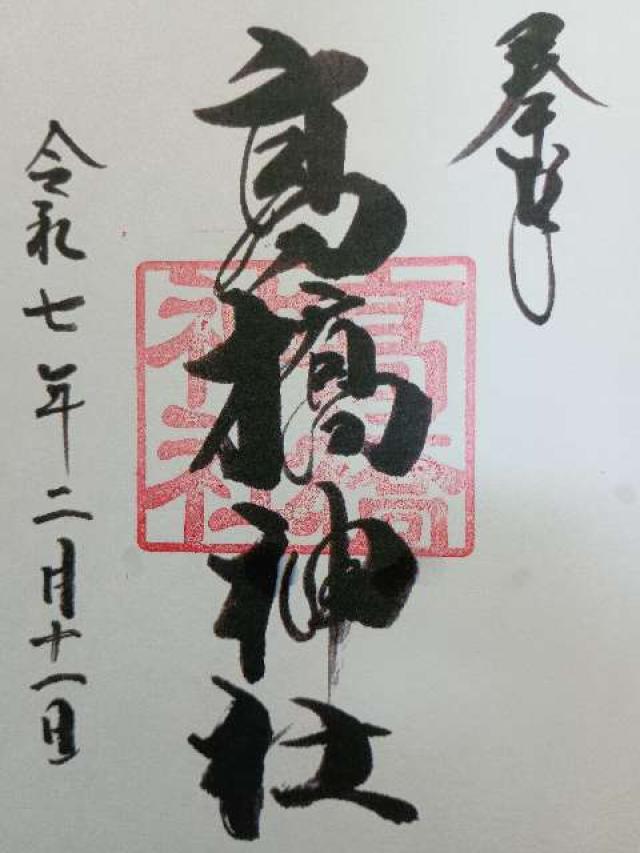 奉拝
髙橋神社
高橋
神社
令和七年二月十一日